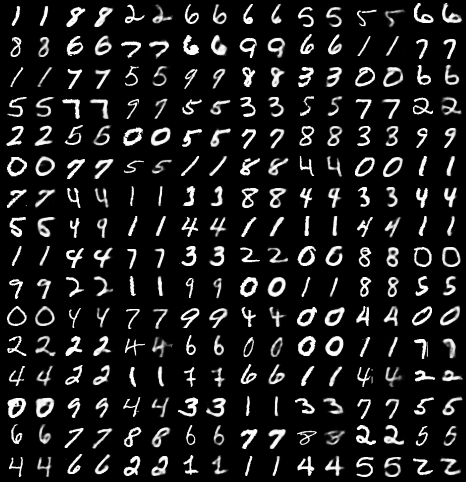 1 1 8 8 2 2 6 6 6 6 5 5 5 5 6 6
8 8 6 6 7 7 6 6 9 9 6 6 1 1 7 7
1 1 7 7 5 5 9 9 8 8 3 3 0 0 6 6
5 5 7 7 9 9 5 5 3 3 5 5 7 7 2 2
2 2 5 5 0 0 5 5 7 7 8 8 3 3 9 9
0 0 7 7 5 5 1 1 8 8 4 4 0 0 1 1
7 7 4 4 1 1 3 3 8 8 4 4 3 3 4 4
5 5 4 9 1 1 4 4 1 1 1 1 4 4 1 1
1 1 4 4 7 7 3 3 2 2 0 0 8 8 0 0
9 9 2 2 1 1 9 9 0 0 1 1 8 8 5 5
0 0 4 4 7 7 9 9 4 4 0 0 4 4 0 0
2 2 2 2 4 4 6 6 0 0 0 0 1 1 7 7
4 4 2 2 1 1 7 7 6 6 1 1 4 4 2 2
0 0 9 9 4 4 3 3 1 1 3 3 7 7 5 5
6 6 7 7 8 8 6 6 7 7 8 3 2 2 5 5
4 4 6 6 2 2 1 1 1 1 4 4 5 5 2 2